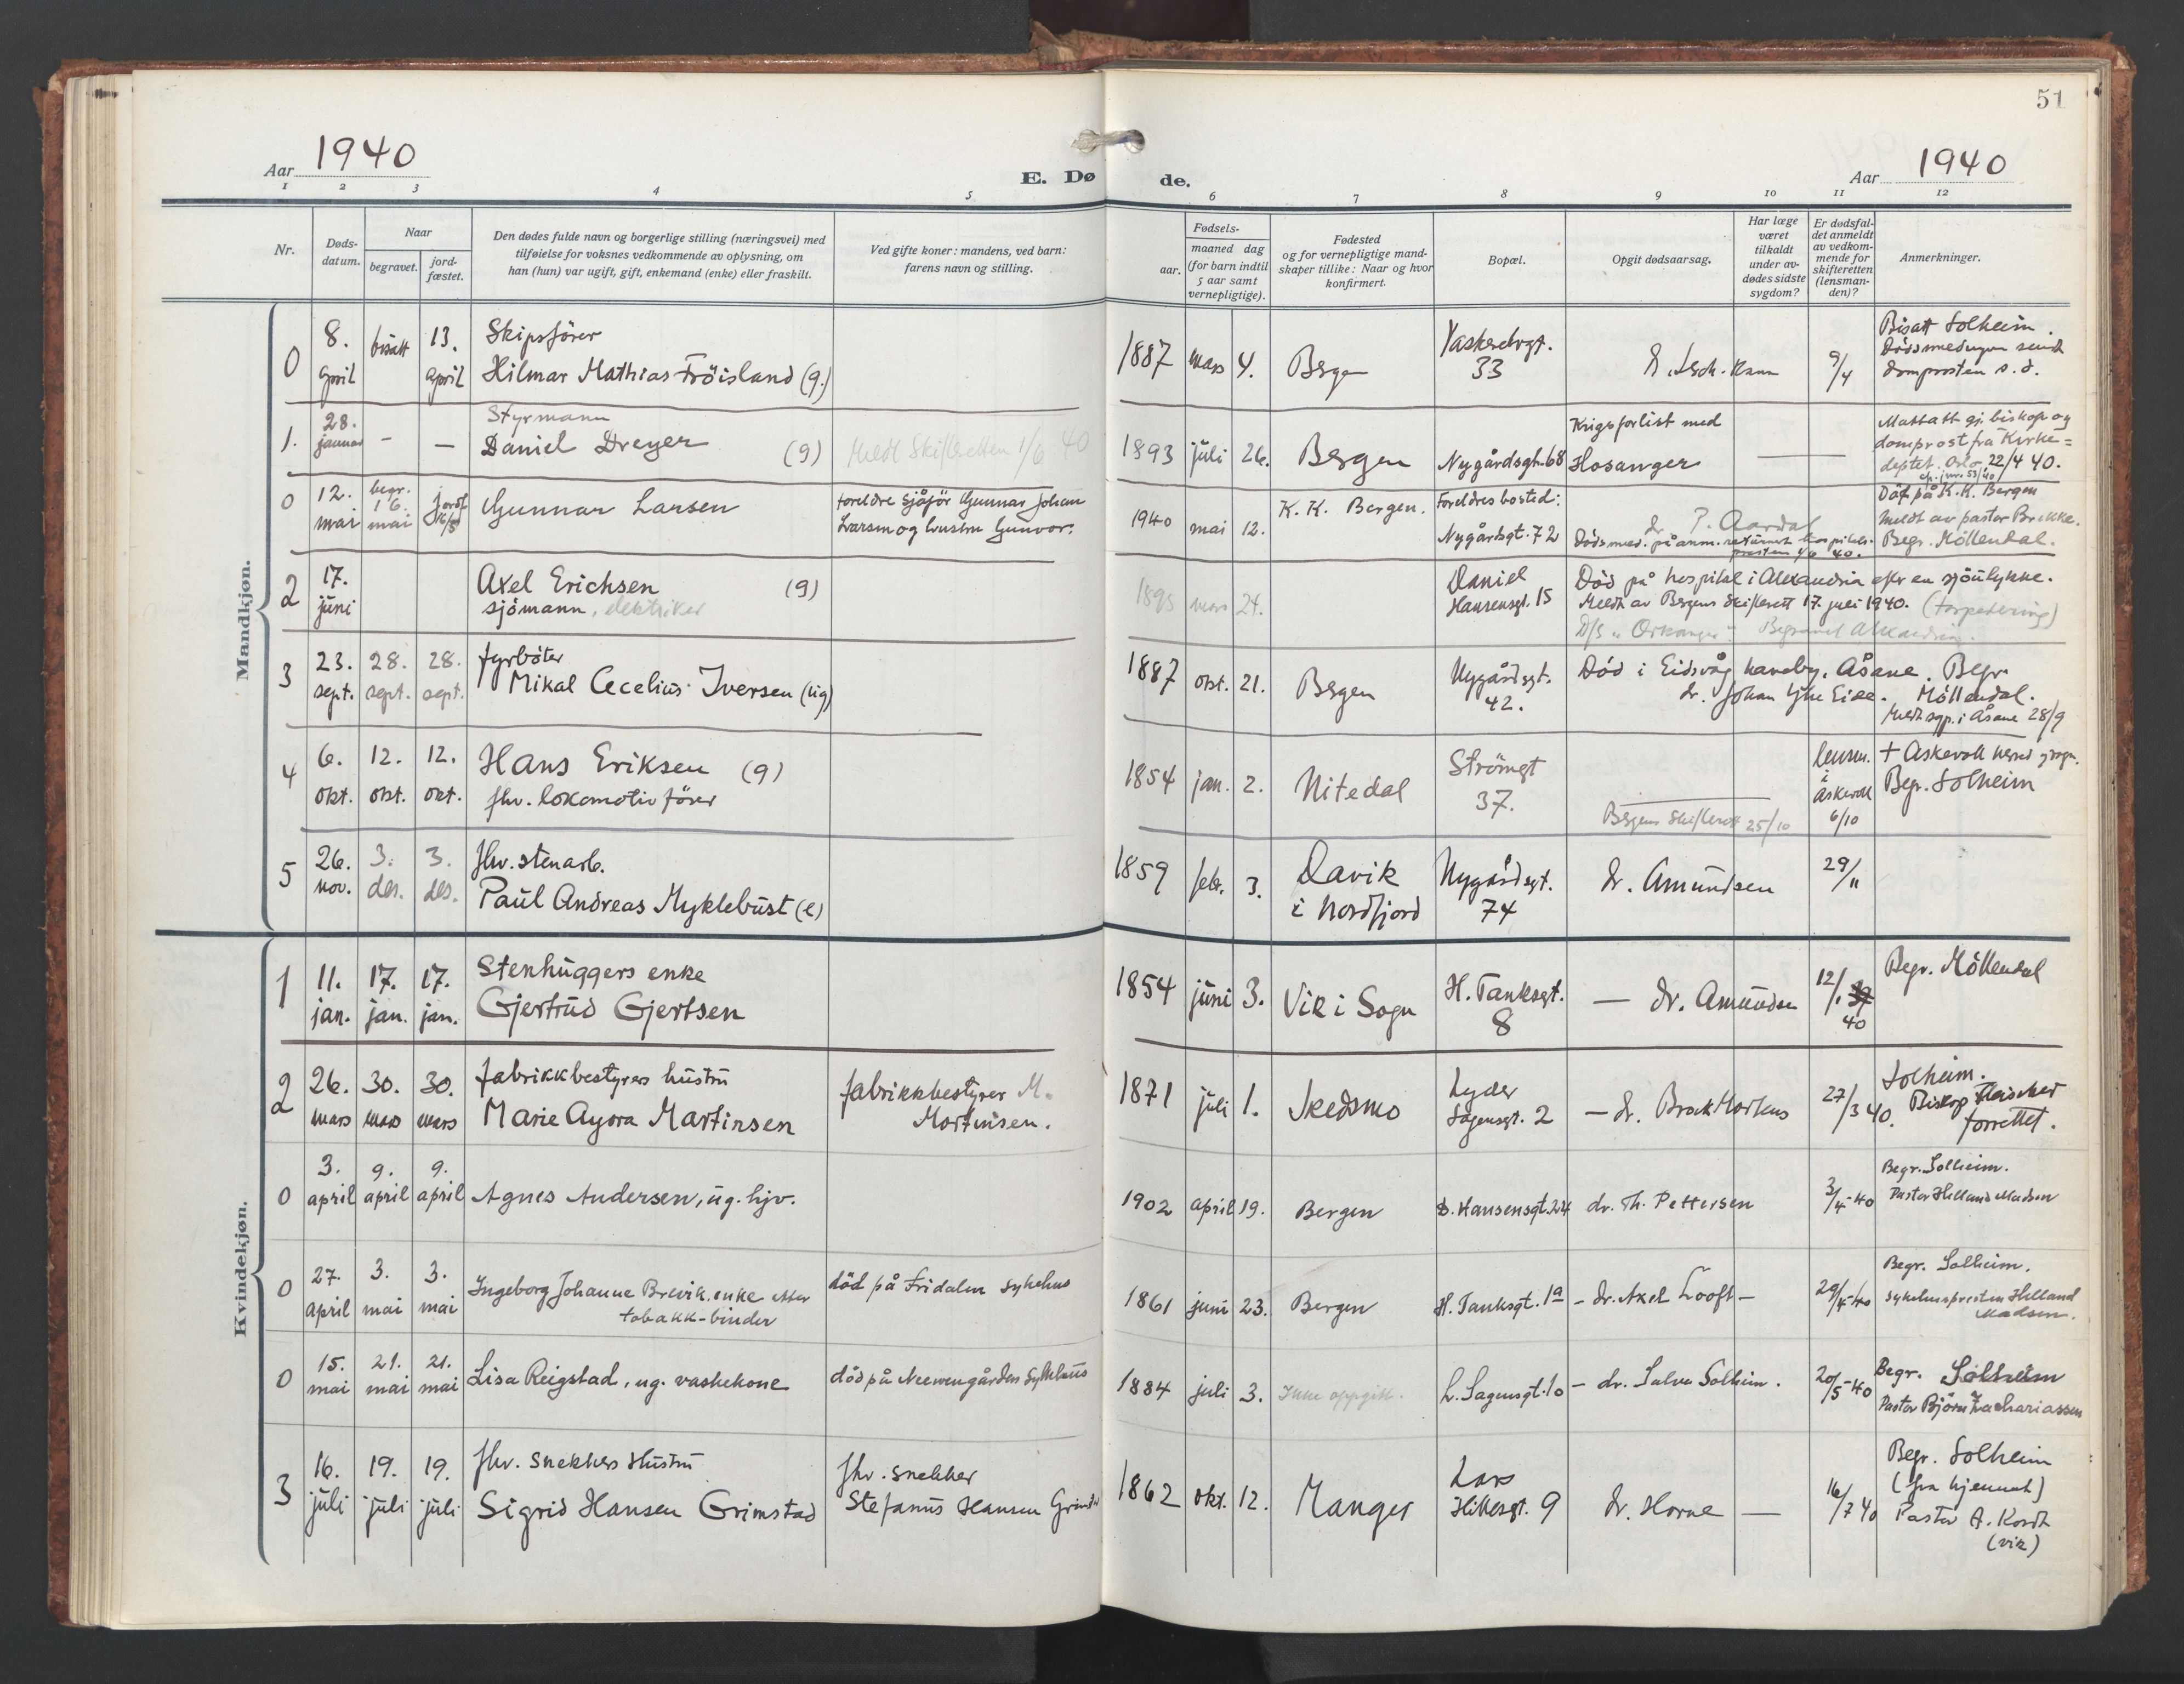 51
Aar 1940
E. Dø
de.
Aar 1940
1 2 3 4 5 6 7 8 9 10 11 12
Nr.
Døds-
datum.
Naar
begravet.
jord-
fæstet.
Den dødes fulde navn og borgerlige stilling (næringsvei) med
tilføielse for voksnes vedkommende av oplysning, om
han (hun) var ugift, gift, enkemand (enke) eller fraskilt.
Ved gifte koner: mandens, ved barn:
farens navn og stilling.
Fødsels-
aar.
maaned dag
(for barn indtil
5 aar samt
vernepligtige).
Fødested
og for vernepligtige mand-
skaper tillike: Naar og hvor
konfirmert.
Bopæl.
Opgit dødsaarsag.
Har læge
været
tilkaldt
under av-
dødes sidste
sygdom?
Er dødsfal-
det anmeldt
av vedkom-
mende for
skifteretten
(lensman-
den)?
Anmerkninger.
Mandkjøn.
0
8.
april
bisatt
13.
april
Skipsfører
Hilmar Mathias Fröisland (g.)
1887 mars 4.
Bergen
33
9/4
Bisatt Solheim.
domprosten s. d.
1.
28.
januar
-
-
Styrmann
Daniel Dreyer (g)
Meldt Skifteretten 1/6 40
1893 juli 26.
Bergen
Nygårdsgt. 68
Krigsforlist med
Hosanger
Mottatt gj. biskop og
domprost fra Kirke=
deptet. Oslo, 22/4 40.
0
12.
mai
begr.
16.
mai
jordf.
16/5
Gunnar Larsen
foreldre sjåför Gunnar Johan
Larsen og hustru Gunvor.
1940 mai 12.
K. K. Bergen.
Foreldres bosted:
Nygårdsgt. 72
dr. P. Aardal
Död på K.K. Bergen
Meldt av pastor Brekke.
Begr. Möllendal.
2
17.
juni
Axel Erichsen (g)
sjömann, elektriker
1895 mars 24.
Daniel
Hansensgt. 15
Död på hospital i Alexandria efter en sjöulykke.
Meldt av Bergens Skifterett 17. juli 1940. (torpedering)
D/S "Orkanger" Begravet Alexandria.
3
23.
sept.
28.
sept.
28.
sept.
fyrböter
Mikal Cecelius Iversen (ug)
1887 okt. 21.
Bergen
Nygårdsgt.
42.
Död i Eidsvåg, Åsane. Begr.
Möllendal.
Meldt sgp. i Åsane 28/9
4
6.
okt.
12.
okt.
12.
okt.
Hans Eriksen (g)
fhv. lokomotivförer
1854 jan. 2.
Nitedal
Strömgt
37.
Bergens Skifterett 25/10
lensm.
i
Askevoll
6/10
+ Askevoll
Begr. Solheim
5
26.
nov.
3.
des.
3.
des.
fhv. stenarb.
Paul Andreas Myklebust (e)
1859 febr. 3.
Davik
i Nordfjord
Nygårdsgt.
74
dr. Amundsen
29/11
Kvindekjøn.
1
11.
jan.
17.
jan.
17.
jan.
Stenhuggers enke
Gjertrud Gjertsen
1854 juni 3.
Vik i Sogn
H. Tanksgt.
8
- dr. Amundsen
12/1
40
Begr. Möllendal
2
26.
mars
30.
mars
30.
mars
fabrikkbestyrers hustru
Marie Agora Martinsen
fabrikkbestyrer M.
Martinsen.
1871 juli 1.
Skedsmo
Lyder
Sagensgt. 2
- dr. Brock Mortens
27/3 40.
Solheim.
Biskop Fleischer
forrettet.
0
3.
april
9.
april
9.
april
Agnes Andersen, ug. hjv.
1902 april 19.
Bergen
D. Hansensgt. 24
dr. Th. Pettersen
3/4-40
Begr. Solheim.
Pastor Helland Madsen
0
27.
april
3.
mai
3.
mai
Ingeborg Johanne Brevik, enke etter
tobakk-binder
död på Fridalen sykehus
1861 juni 23.
Bergen
H. Tanksgt. 1a
- dr. Axel Looft -
29/4-40
Begr. Solheim.
sykehuspresten Helland
Madsen.
0
15.
mai
21.
mai
21.
mai
Lisa Reigstad, ug. vaskekone
död på Neevengården sykehus
1884 juli 3.
Ikke oppgitt.
L. Sagensgt. 10
- dr. Salve Solheim.
20/5-40
Begr. Solheim
Pastor Björn Zachariassen
3
16.
juli
19.
juli
19.
juli
fhv. snekkers hustru
Sigrid Hansen Grimstad
fhv. snekker
Stefanus Hansen
1862 okt. 12.
Manger
Lars
Hillesgt. 9
dr. Horne -
16/7 40
Begr. Solheim
(fra hjemmet)
Pastor A. Kordt
(vik)